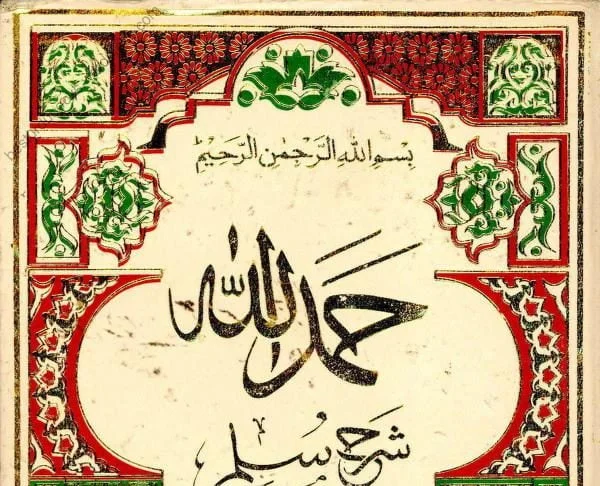 بسم الله الرحمن الرحیم
حمد الله
شرح سلم